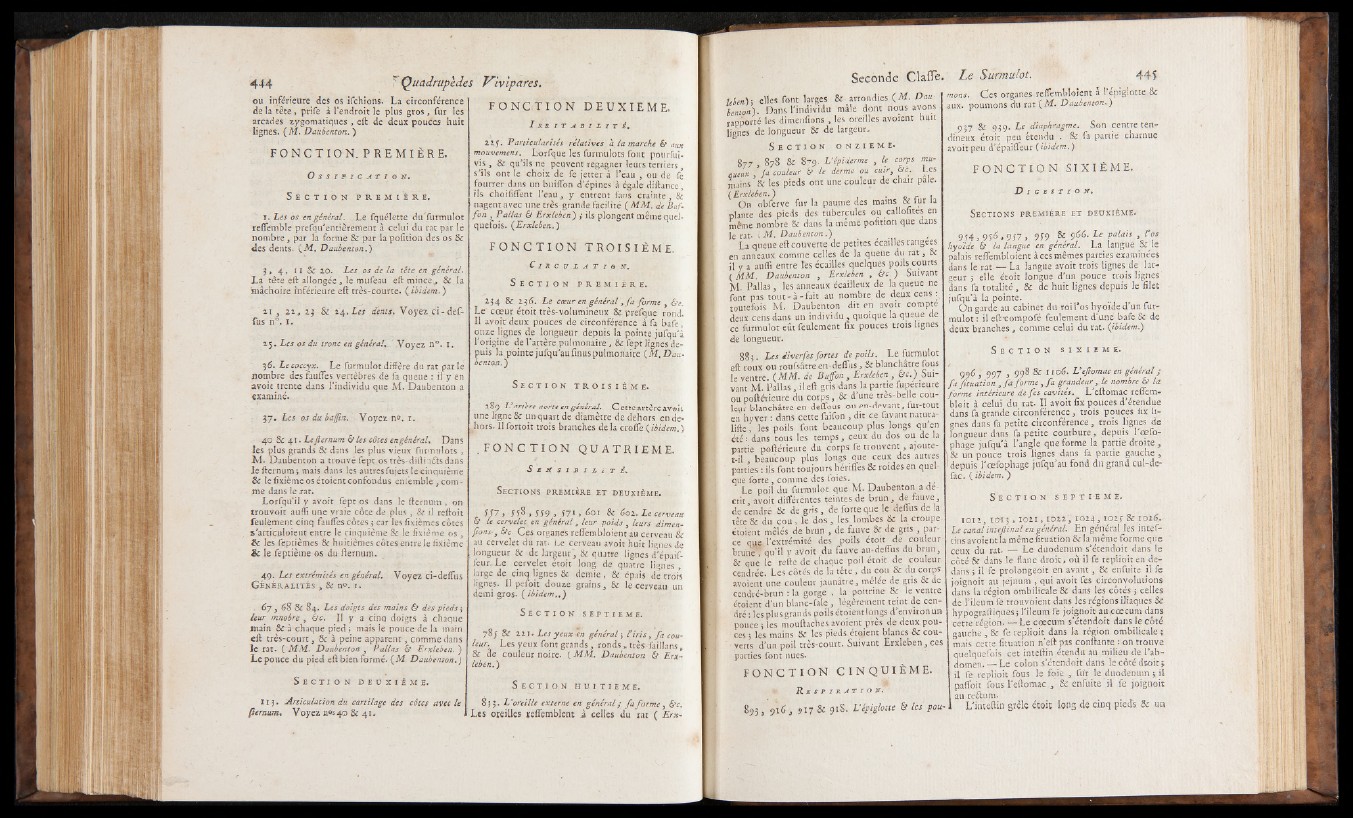 444 Quadrupèdes Vivipares.
ou inférieure des os ifchions. La circonférence
de la tête, prife à l'endroit le plus gros, fur les
arcades zygomatiques, eft de deux pouces huit
lignes. (M. Daubenton.)
FONCTION PREMIÈRE.
OSSIFICATION.
SECTION PREMIERE.
1. Les os en général. Le fquélette du furmulot
reffemble prefqu'entièrement à celui du rat par le
nombre, par la forme & par la pofition des os &
des dents. (M. Daubenton.)
3, 4, 11 & 20. Les os de la tête en général.
La tête eft allongée, le mufeau eft mince, & la
mâchoire inférieure eft très-courte. (ibidem.)
21, 22, 23 & 24. Les dents. Voyez ci-def-
fus n°. 1.
25. Les os du tronc en général. Voyez n°. 1.
36. Le coccyx. Le furmulot diffère du rat par le
nombre des fauffes vertèbres de fa queue : il y en
avoit trente dans l'individu que M. Daubenton a
examiné.
37. Les os du baffin. Voyez n°. 1.
40 & 41. Le fternum & les côtes en général. Dans
les plus grands & dans les plus vieux furmulots,
M. Daubenton a trouvé fept os très-diftincts dans
le fternum ; mais dans les autres fujets le cinquième
& le fixième os étoient confondus enfemble, com-
me dans le rat.
Lorfqu'il y avoit fept os dans le fternum, on
trouvoit auffi une vraie côte de plus, & il reftoit
feulement cinq fauffes côtes ; car les fixièmes côtes
s'articuloient entre le cinquième & le fixième os,
& les feptièmes & huitièmes côtes entre le fixième
& le feptième os du fternum.
49. Les extrémités en général. Voyez ci-deffus
GÉNÉRALITÉS, & n°. 1.
67, 68 & 84. Les doigts des mains & des pieds ;
leur nombre, &c. Il y a cinq doigts à chaque
main & à chaque pied ; mais le pouce de la main
eft très-court, & à peine apparent, comme dans
le rat. (MM. Daubenton, Pallas & Erxleben.)
Le pouce du pied eft bien formé. (M Daubenton.)
SECTION DEUXIÉME.
113. Articulation du cartilage des côtes avec le
fternum. Voyez nos 40 & 41.
FONCTION DEUXIEME.
IRRITABILITÉ.
225. Particularités rélatives à la marche & aux
mouvemens. Lorfque les furmulots font pourfui-
vis, & qu'ils ne peuvent regagner leurs terriers,
s'ils ont le choix de fe jetter à l'eau, ou de fe
fourrer dans un buiffon d'épines à égale diftance,
ils choififfent l'eau, y entrent fans crainte, &
nagent avec une très grande facilité (MM. de Buf-
fon, Pallas & Erxleben) ; ils plongent même quel-
quefois. (Erxleben.)
FONCTION TROISIÈME.
CIRCULATION.
SECTION PREMIERE.
234 & 236. Le cœur en général, fa forme, &c.
Le cœur étoit très-volumineux & prefque rond.
Il avoit deux pouces de circonférence à fa bafe,
onze lignes de longueur depuis la pointe jufqu'à
l'origine de l'artère pulmonaire, & fept lignes de-
puis la pointe jufqu'au finus pulmonaire (M. Dau-
benton.)
SECTION TROISIÉME.
289 L'artère aorte en général. Cette artère avoit
une ligne & un quart de diamètre de dehors en de-
hors. Il fortoit trois branches de la croffe (ibidem.)
FONCTION QUATRIEME.
SENSIBILITÉ.
SECTIONS PREMIÈRE ET DEUXIÈME.
557, 558, 559, 571, 601 & 602. Le cerveau
& le cervelet en général, leur poids, leurs dimen-
fions, &c Ces organes reffembloient au cerveau &
au cervelet du rat. Le cerveau avoit huit lignes de
longueur & de largeur, & quatre lignes d'épaif-
feur. Le cervelet étoit long de quatre lignes,
large de cinq lignes & demie, & épais de trois
lignes. Il pefoit douze grains, & le cerveau un
demi gros. (ibidem.)
SECTION SEPTIEME.
785 & 221. Les yeux en général ; l'iris, fa cou-
leur. Les yeux font grands, ronds, très faillans,
& de couleur noire. (MM. Daubenton & Erx-
leben.)
SECTION HUITIEME.
833. L'oreille externe en général ; fa forme, &c.
Les oreilles reffemblent à celles du rat (Erx-
Seconde Claffe. Le Surmulot. 445
leben) ; elles font larges & arrondies (M. Dau-
benton). Dans l'individu mâle dont nous avons
rapporté les dimenfions, les oreilles avoient huit
lignes de longueur & de largeur.
SECTION ONZIEME.
877, 878 & 879. L'épiderme, le corps mu-
queux, fa couleur & le derme ou cuir, &c. Les
mains & les pieds ont une couleur de chair pâle.
(Erxleben.)
On obferve fur la paume des mains & fur la
plante des pieds des tubercules ou callofités en
même nombre & dans la même pofition que dans
le rat. (M. Daubenton.)
La queue eft couverte de petites écailles rangées
en anneaux comme celles de la queue du rat, &
il y a auffi entre les écailles quelques poils courts
(MM. Daubenton, Erxleben, &c) Suivant
M. Pallas, les anneaux écailleux de la queue ne
font pas tout-à-fait au nombre de deux cens :
toutefois M. Daubenton dit en avoir compté
deux cens dans un individu, quoique la queue de
ce furmulot eût feulement fix pouces trois lignes
de longueur.
883. Les diverfes fortes de poils. Le furmulot
eft roux ou roufsâtre en-deffus, & blanchâtre fous
le ventre. (MM. de Buffon, Erxleben, &c.) Sui-
vant M. Pallas, il eft gris dans la partie fupérieure
ou poftérieure du corps, & d'une très-belle cou-
leur blanchâtre en deffous ou en-devant, fur-tout
en hyver : dans cette faifon, dit ce favant natura-
lifte, les poils font beaucoup plus longs qu'en
été : dans tous les temps, ceux du dos ou de la
partie poftérieure du corps fe trouvent, ajoute-
t-il, beaucoup plus longs que ceux des autres
parties : ils font toujours hériffés & roides en quel
que forte, comme des foies.
Le poil du furmulot que M. Daubenton a dé
crit, avoit différentes teintes de brun, de fauve,
de cendré & de gris, de forte que le deffus de la
tête & du cou, le dos, les lombes & la croupe
étoient mêlés de brun, de fauve & de gris, par-
ce que l'extrémité des poils étoit de couleur
brune, qu'il y avoit du fauve au-deffus du brun,
& que le refte de chaque poil étoit de couleur
cendrée. Les côtés de la tête, du cou & du corps
avoient une couleur jaunâtre, mêlée de gris & de
cendré-brun : la gorge, la poitrine & le ventre
étoient d'un blanc-fale, légèrement teint de cen-
dré : les plus grands poils étoient longs d'environ un
pouce ; les mouftaches avoient près de deux pou-
ces ; les mains & les pieds étoient blancs & cou-
verts d'un poil très-court. Suivant Erxleben, ces
parties font nues.
FONCTION CINQUIÈME.
RESPIRATION.
895, 916, 917 & 918. L'épiglotte & les pou-
mons. Ces organes reffembloient à l'épiglotte &
aux poumons du rat (M. Daubenton.)
937 & 939. Le diaphragme. Son centre ten-
dineux étoit peu étendu, & fa partie charnue
avoit peu d'épaiffeur (ibidem.)
FONCTION SIXIÈME.
DIGESTION.
SECTIONS PREMIERE ET DEUXIÈME.
954, 956, 957, 959 & 966. Le palais, l'os
hyoïde & la langue en général. La langue & le
palais reffembloient à ces mêmes parties examinées
dans le rat — La langue avoit trois lignes de lar-
geur ; elle étoit longue d'un pouce trois lignes
dans fa totalité, & de huit lignes depuis le filet
jufqu'à la pointe.
On garde au cabinet du roi l'os hyoïde d'un fur-
mulot : il eft compofé feulement d'une bafe & de
deux branches, comme celui du rat. (ibidem.)
SECTION SIXIEME.
996, 997, 998 & 1106. L'eftomac en général ;
fa fituation, fa forme, fa grandeur, le nombre & la
forme intérieure de fes cavités. L'eftomac reffem-
bloit à celui du rat. Il avoit fix pouces d'étendue
dans fa grande circonférence, trois pouces fix li-
gnes dans fa petite circonférence, trois lignes de
longueur dans fa petite courbure, depuis l'œfo-
phage jufqu'à l'angle que forme la partie droite,
& un pouce trois lignes dans fa partie gauche,
depuis l'œfophage jufqu'au fond du grand cul-de-
fac. (ibidem.)
SECTION SEPTIEME.
1012, 1013, 1021, 1022, 1024, 1025 & 1026.
Le canal inteftinal en général. En général les intef-
tins avoient la même fituation & la même forme que
ceux du rat. — Le duodenum s'étendoit dans le
côté & dans le flanc droit, où il fe replioit en de-
dans ; il fe prolongeoit en avant, & enfuite il fe
joignoit au jejunum, qui avoit fes circonvolutions
dans la région ombilicale & dans les côtés ; celles
de l'ileum fe trouvoient dans les régions iliaques &
hypogaftriques ; l'ileum fe joignoit au cœcum dans
cette région. — Le cœcum s'étendoit dans le côté
gauche, & fe replioit dans la région ombilicale ;
mais cette fituation n'eft pas conftante : on trouve
quelquefois cet inteftin étendu au milieu de l'ab-
domen. — Le colon s'étendoit dans le côté droit ;
il fe replioit fous le foie, fur le duodenum ; il
paffoit fous l'eftomac, & enfuite il fe joignoit
au rectum.
L'inteftin grêle étoit long de cinq pieds & un